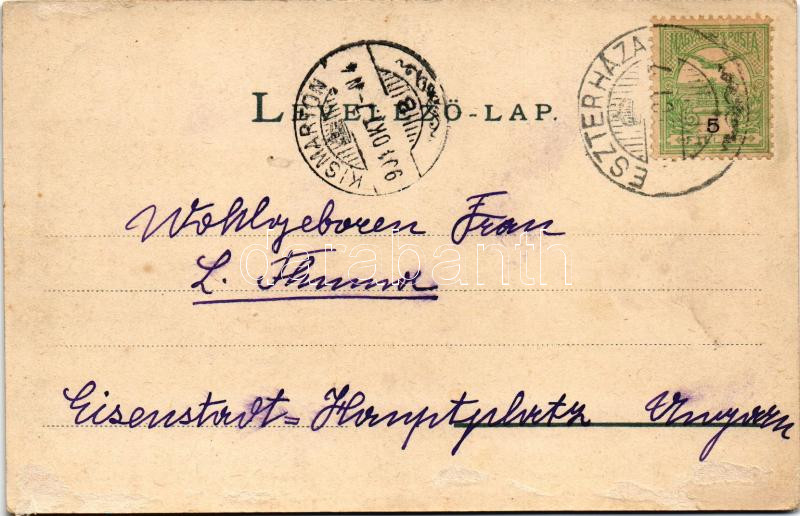 LEVELEZŐ-LAP.
KISMARTON
901 OKT
ESZTERHÁZA
MAGYAR KIR. POSTA
5
Wohlgeboren Frau
L. Thurner
Eisenstadt=Hauptplatz Ungarn
darabanth